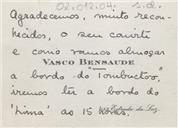 02.012.04. s.d.
Agradecemos, muito reco-
nhecidos, o seu convite
e como vamos almoçar
VASCO BENSAUDE
a bordo do "
iremos ter a bordo do
"Lima" as 15 horas.
Estrada da Luz,